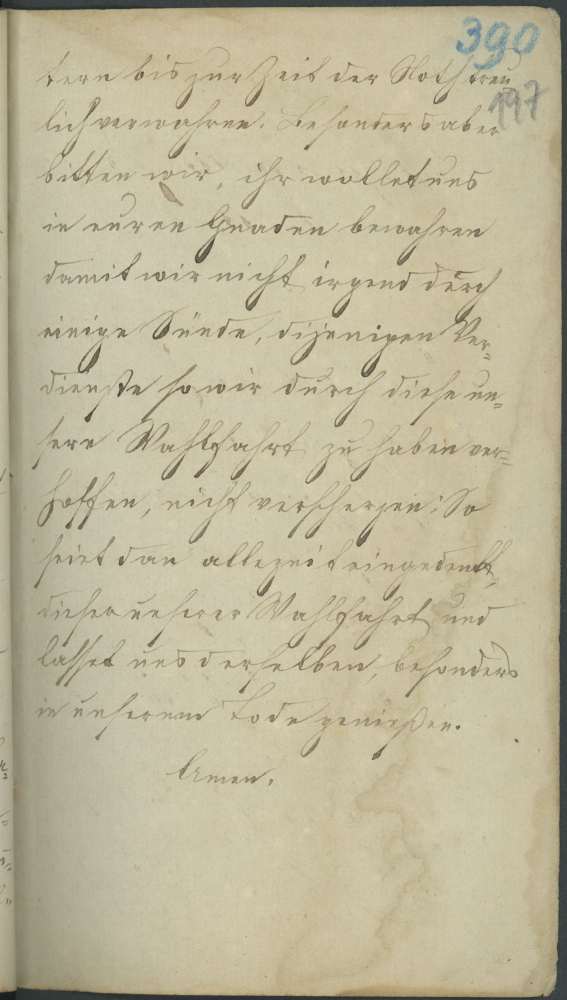 390
197
tern bis zur Zeit der Noth treu
lich verwahren. Besonders aber
bitten wir, ihr wollet uns
in euren Gnaden bewahren
damit wir nicht irgend durch
einige Sünde, dijenigen Ver-
dienste so wir durch diese un-
sere Wahlfahrt zu haben ver-
hoffen, nicht verscherzen: So
seiet dan allezeit eingedenkt,
dieser unserer Wahlfahrt und
lasset uns derselben, besonders
in unserem Tode genießen.
Amen.